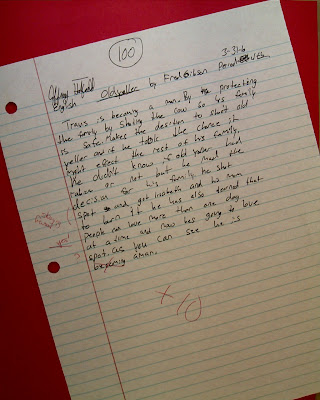 100
3-31-6
Oldyeller by Fred Gibson Period
English
Travis is becoming a man. By the protecting
the family by shoting the cow so his family
is safe. Makes the decision to shoot old
yeller and if he the chance it
might effect the rest of his family.
He know if old yeller had
rabies or not but he made the
decision for his family. he shot
spot and got and his mom
to burn it he has also lerned that
people can love more than one dog
at a time and now hes going to love
spot. as you can see he is
becoming a man.
+10